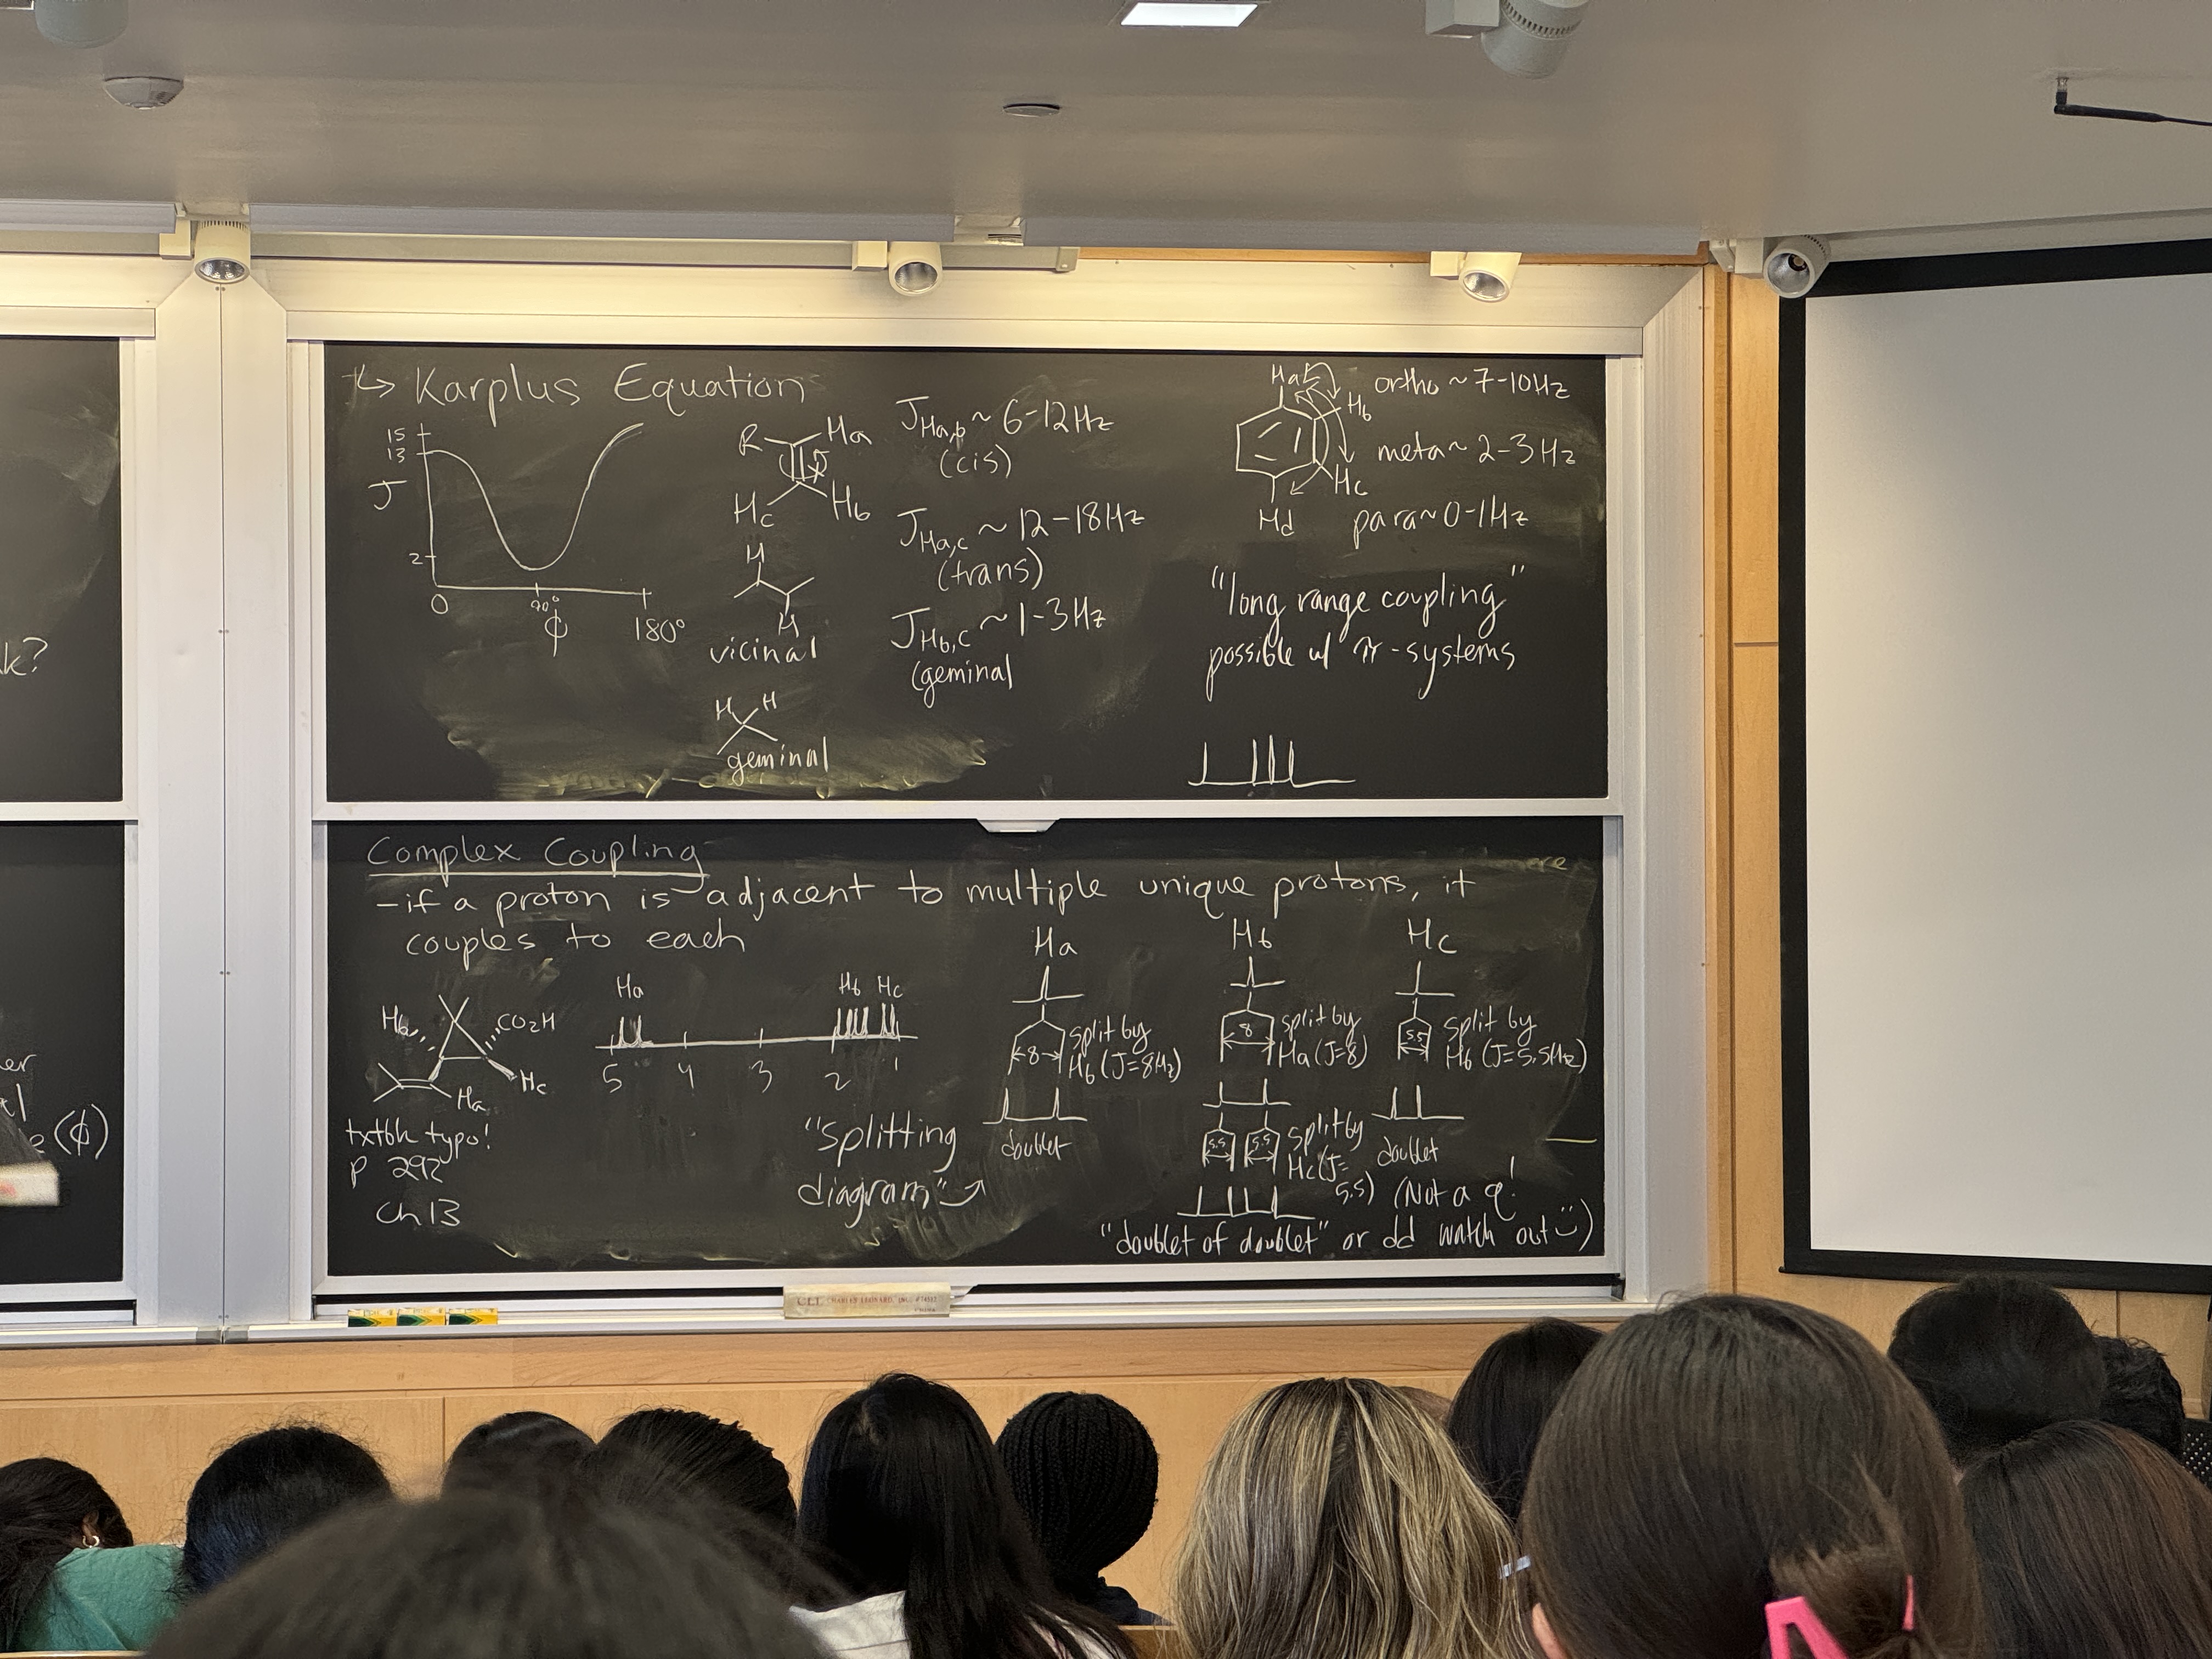 k?
er
e (ϕ)
↳ Karplus Equation
15
13
J
2
0
90°
180°
ϕ
R
Ha
Hc
Hb
H
H
vicinal
H H
geminal
J Ha,b ~ 6-12Hz
(cis)
J Ha,c ~ 12-18Hz
(trans)
J Hb,c ~ 1-3Hz
(geminal
Ha
Hb
Hc
Hd
ortho ~ 7-10Hz
meta ~ 2-3Hz
para ~ 0-1Hz
"long range coupling"
possible w/ π-systems
Complex Coupling
- if a proton is adjacent to multiple unique protons, it
couples to each
Hb
CO2H
Hc
Ha
txtbk typo!
p 292
Ch 13
Ha
Hb Hc
5 4 3 2 1
"Splitting
diagram"
Ha
8
split by
Hb (J=8Hz)
doublet
Hb
8
split by
Ha (J=8)
5.5 5.5
split by
Hc (J=
5.5)
"doublet of doublet" or dd
Hc
5.5
split by
Hb (J=5.5Hz)
doublet
(Not a q!
watch out :))
CLI CHARLES LEONARD, INC.